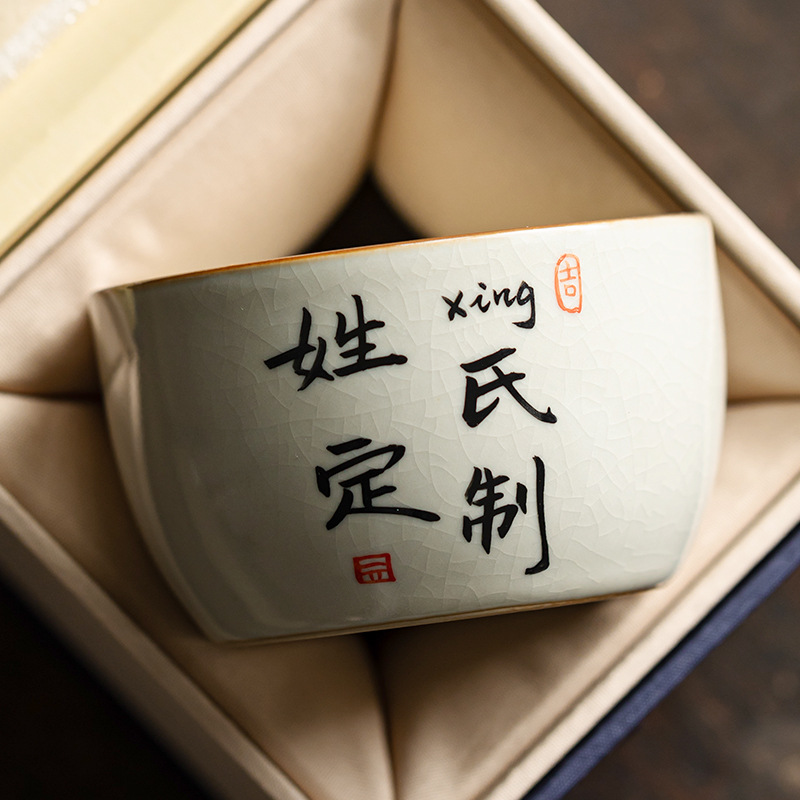 xing
姓氏
定制
吉